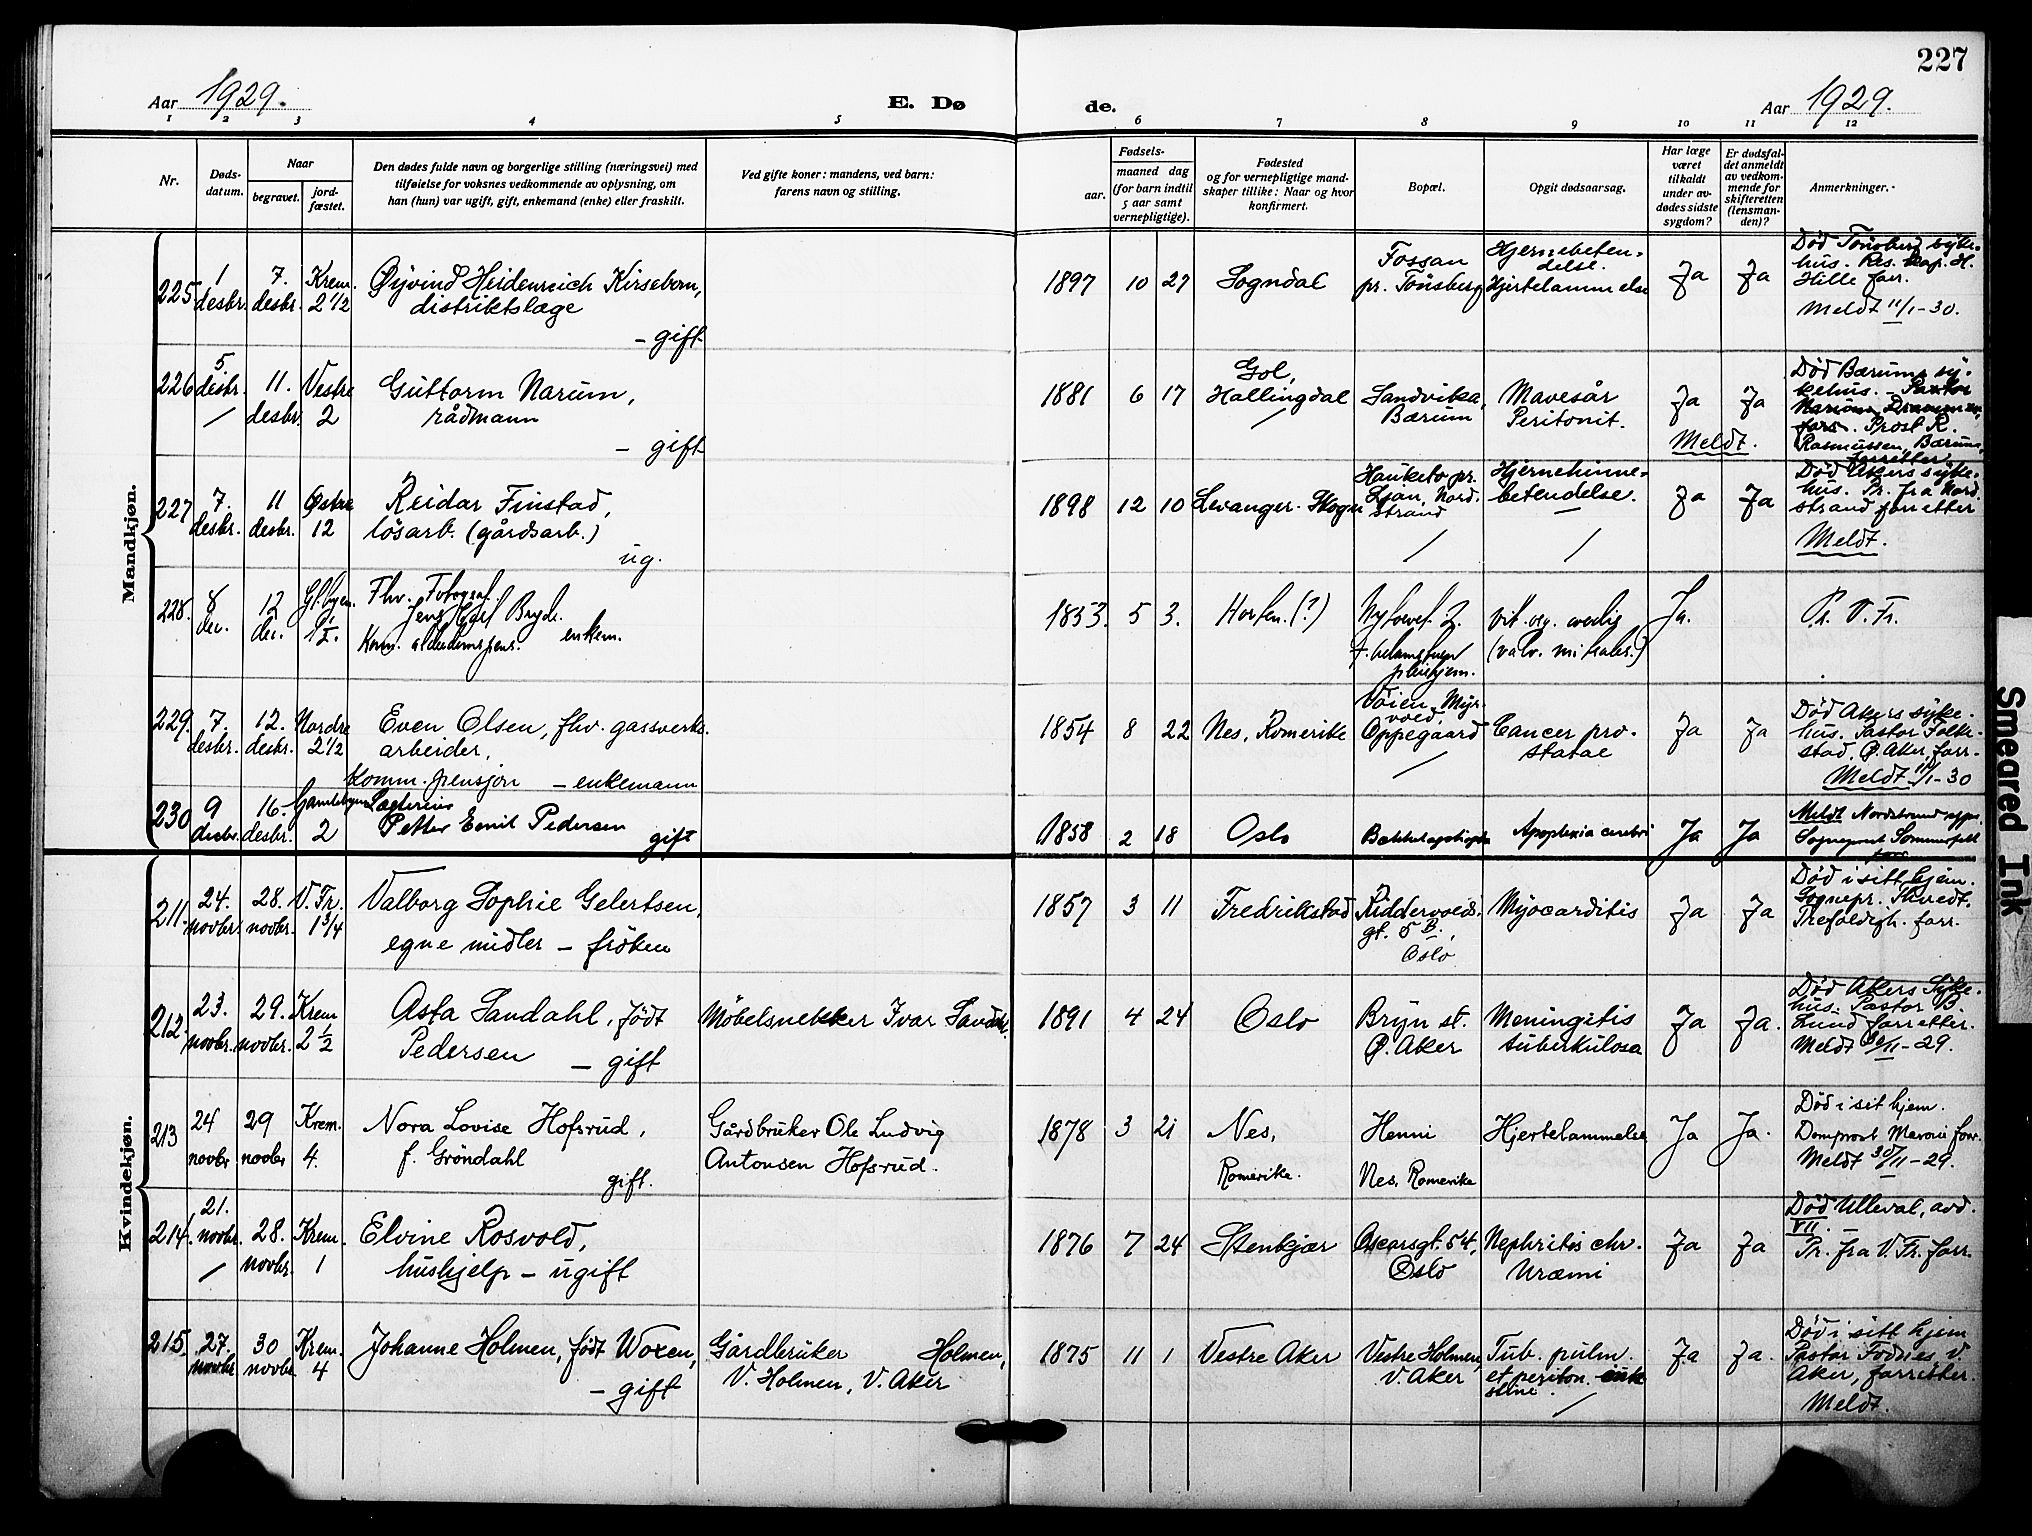 227
Aar 1929.
E. Døde.
Aar 1929.
1 2 3 4 5 6 7 8 9 10 11 12
Nr.
Døds-
datum.
Naar
begravet.
jord-
fæstet.
Den dødes fulde navn og borgerlige stilling (næringsvei) med
tilføielse for voksnes vedkommende av oplysning, om
han (hun) var ugift, gift, enkemand (enke) eller fraskilt.
Ved gifte koner: mandens, ved barn:
farens navn og stilling.
Fødsels-
aar.
maaned dag
(for barn indtil
5 aar samt
vernepligtige).
Fødested
og for vernepligtige mand-
skaper tillike: Naar og hvor
konfirmert.
Bopæl.
Opgit dødsaarsag.
Har læge
været
tilkaldt
under av-
dødes sidste
sygdom?
Er dødsfal-
det anmeldt
av vedkom-
mende for
skifteretten
(lensman-
den)?
Anmerkninger.
Mandkjøn.
225 1 desbr. 7. desbr. Krem. 2 1/2
Øyvind Heidenreich Kirsebom,
distriktslæge
– gift
1897 10 27 Sogndal
Fossan
pr. Tønsberg
Hjernebeten-
delse.
Hjertelammelse
Ja Ja
Død Tønsberg syke-
hus. Res. kap. H.
Hille forr.
Meldt 11/1-30.
226 5 desbr. 11. desbr. Vestre 2
Guttorm Narum,
rådmann
– gift
1881 6 17
Gol,
Hallingdal
Sandvika,
Bærum
Mavesår
Peritonit.
Ja Ja
Meldt.
Død Bærums sy-
kehus. Pastor
Narum, Drammen,
forr. Prost R.
Rasmussen, Bærum,
forretter
227 7. desbr. 11 desbr. Østre 12
Reidar Finstad,
løsarb. (gårdsarb.)
ug.
1898 12 10 Levanger. Skogn
Hauketo pr.
Ljan, Nord-
strand
Hjernehinne-
betendelse.
Ja Ja
Død Akers syke-
hus. Pr. fra Nord-
strand forretter
Meldt.
228. 8 dec. 12 dec.
Fhv. Fotograf
Jens Bryde.
Kom. alderdomspens. enkem.
1853. 5 3. Horten. (?)
pleiehjem.
vit. org. cordis
Ja.
Pr. V. Fr.
229. 7. desbr. 12. desbr. Nordre 2 1/2
Even Olsen, fhv. gassverks-
arbeider,
komm. pensjon – enkemann
1854 8 22 Nes, Romerike
Vøien, Myr-
vold,
Oppegaard
Cancer pro-
statae
Ja Ja
Død Akers syke-
hus. Pastor Folke-
stad, Ø. Aker, forr.
Meldt 11/1-30
230 9 desbr. 16. desbr. Gamlebyen 2
Petter Emil Pedersen
gift
1858 2 18 Oslo
Apoplexia cerebri
Ja Ja
Meldt Nordstrand
Sogneprest Sommerfelt
forr.
Kvindekjøn.
211. 24. novbr. 28. novbr. V. Fr. 1 3/4
Valborg Sophie Gelertsen,
egne midler – frøken
1857 3 11 Fredrikstad
Riddervolds
gt. 5 B.,
Oslo
Myocarditis
Ja Ja
Død i sitt hjem.
Sognepr. Thvedt,
Trefoldigh. forr.
212. 23. novbr. 29. novbr. Krem 2 1/2
Asta Sandahl, født
Pedersen
– gift
Møbelsnekker Ivar Sandahl
1891 4 24 Oslo
Bryn st.
Ø. Aker
Meningitis
tuberkulosa
Ja Ja.
Død Akers Syke-
hus. Pastor B.
Lund forretter.
Meldt 30/11-29.
213 24 novbr 29 novbr Krem. 4.
Nora Lovise Hofsrud,
f. Grøndahl
gift.
Gårdbruker Ole Ludvig
Antonsen Hofsrud.
1878 3 21
Nes,
Romerike.
Henni
Nes, Romerike
Hjertelammelse
Ja Ja.
Død i sit hjem.
Domprost Maroni forr.
Meldt 30/11-29.
214. 21. novbr. 28. novbr. Krem. 1
Elvine Rosvold,
hushjelp – ugift
1876 7 24 Stenkjær
Oscarsgt. 54,
Oslo
Nephritis chr.
Uræmi
Ja Ja
Død Ulleval, avd.
VII.
Pr. fra V. Fr. forr.
215. 27. novbr 30 novbr Krem. 4
Johanne Holmen, født Woxen,
– gift
Gårdbruker Holmen,
V. Holmen, V. Aker
1875 11 1 Vestre Aker
Vestre Holmen,
V. Aker
Tub. pulm.
et periton.
Ja Ja.
Død i sitt hjem
Pastor Fodnes V.
Aker, forretter.
Meldt.
Smeared Ink